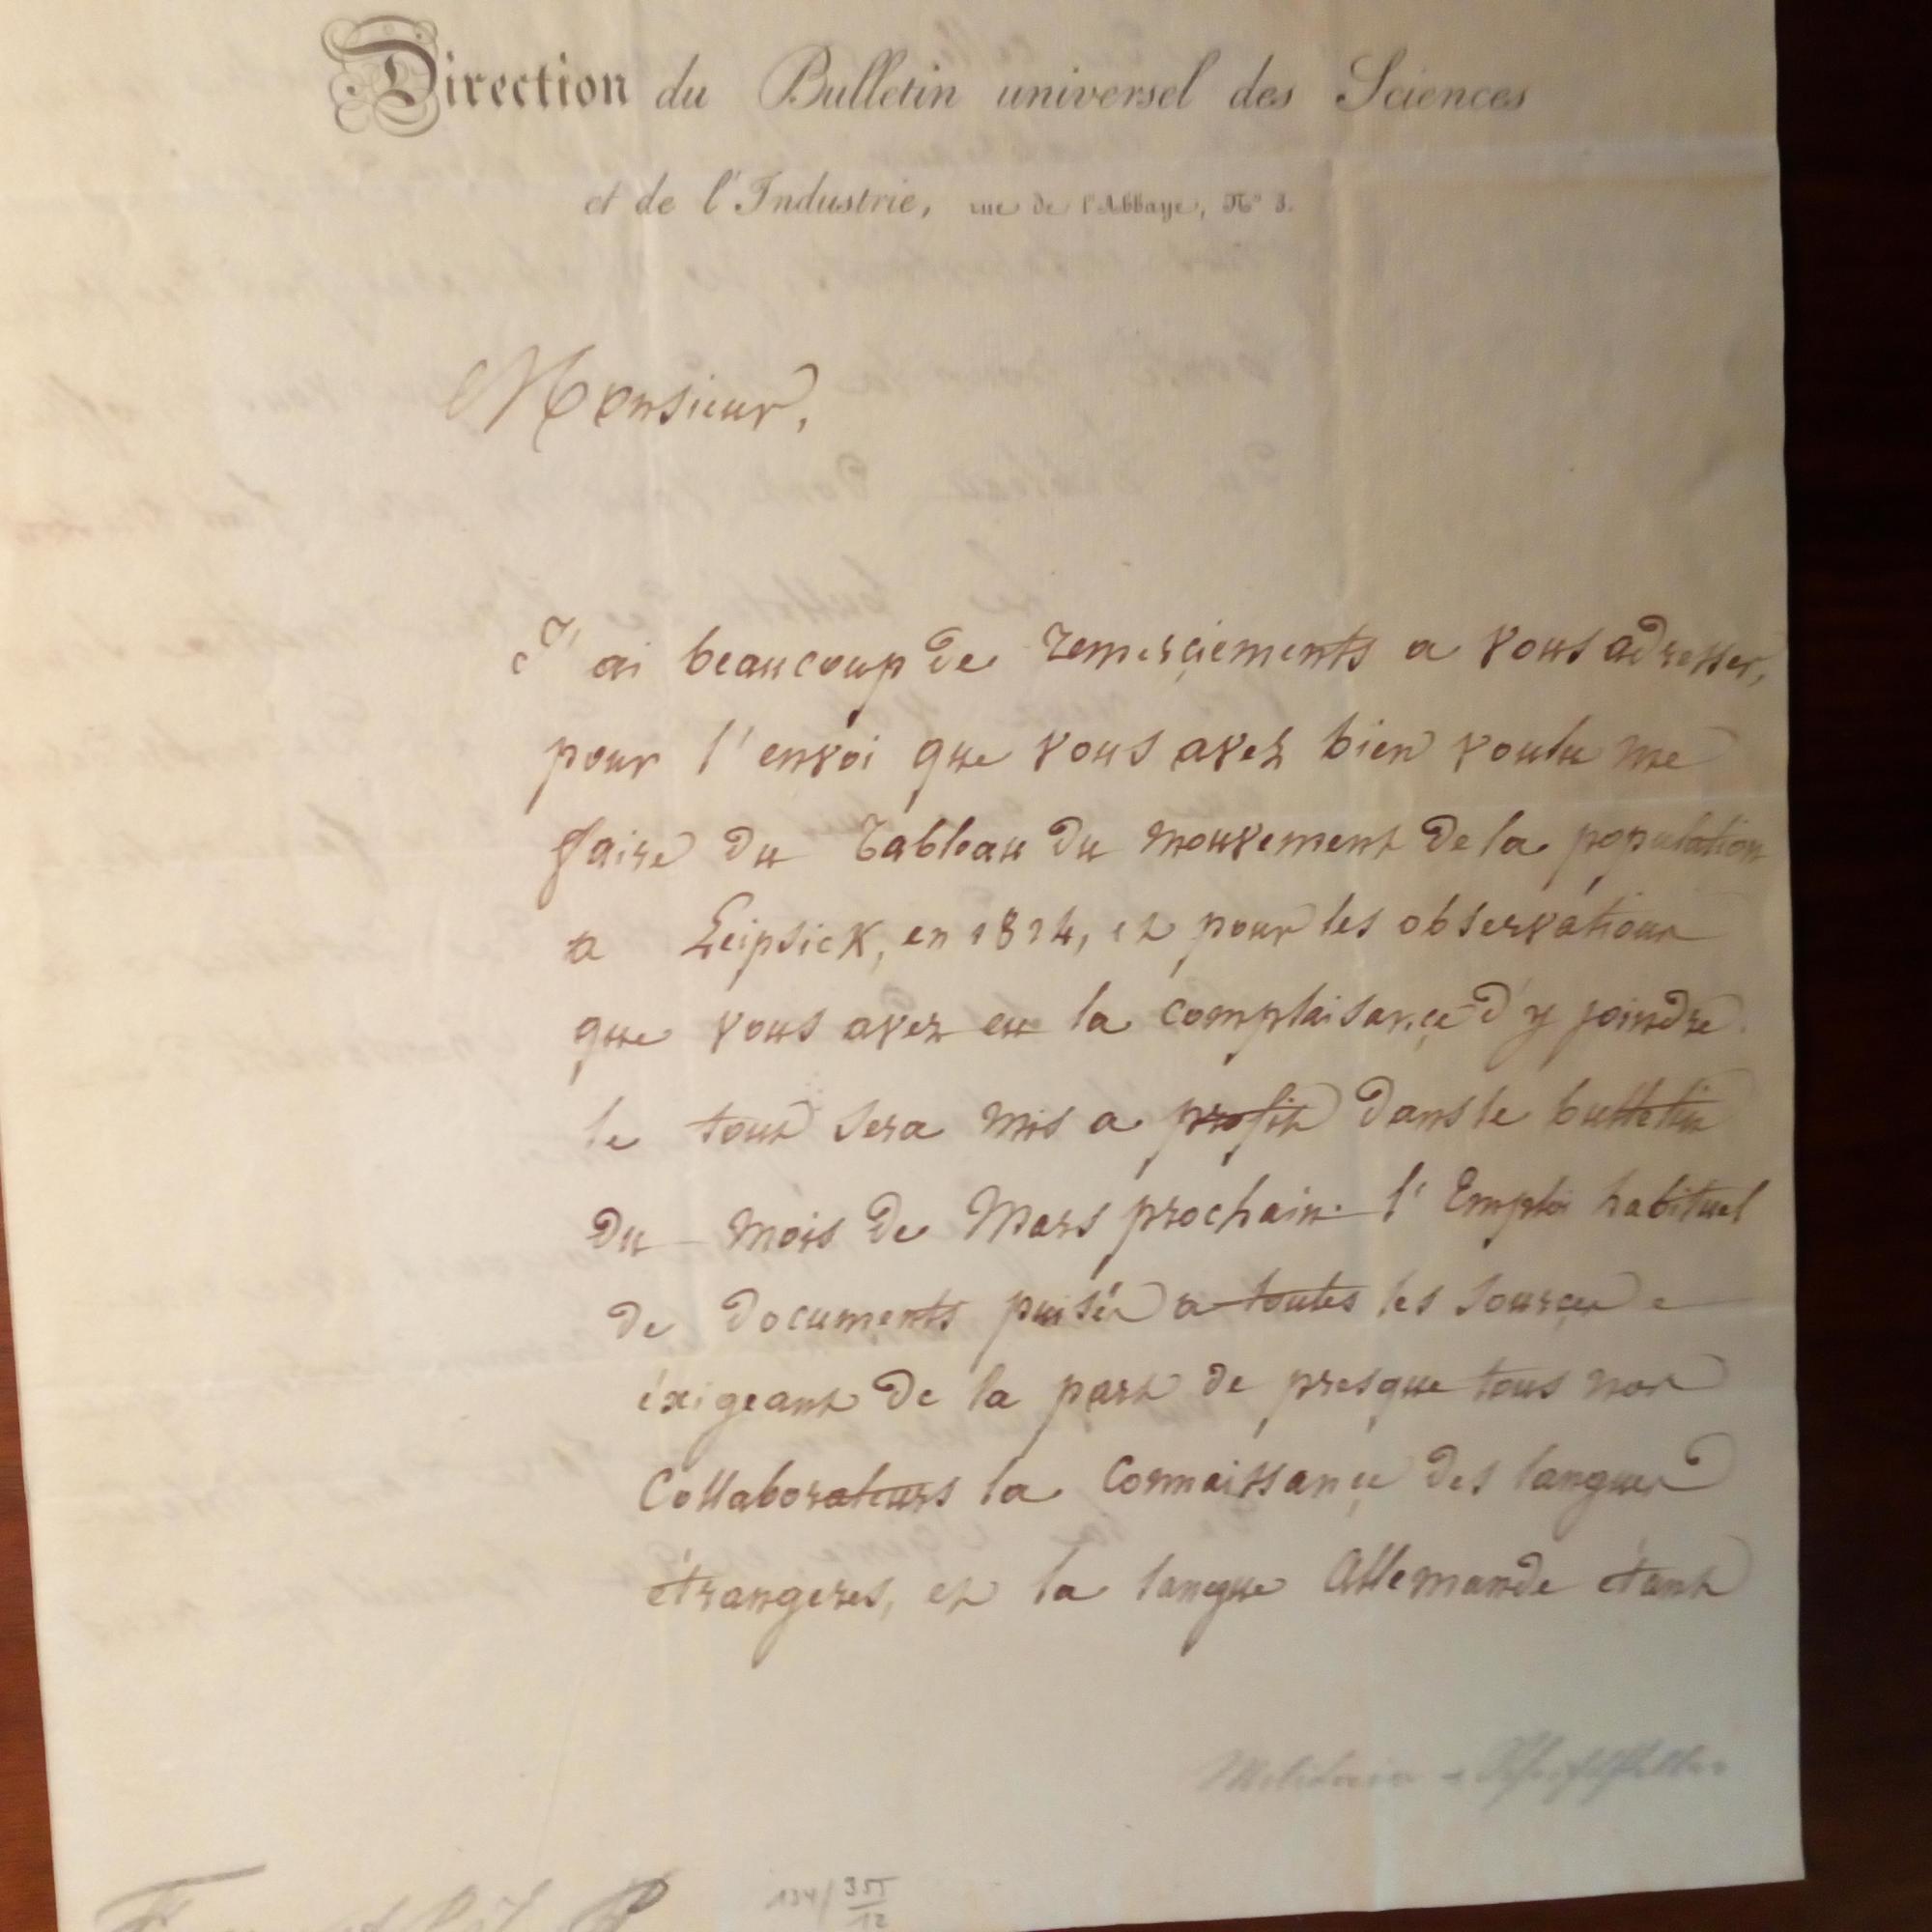 Direction du Bulletin universel des Sciences
et de l'Industrie, rue de l'Abbaye, N° 3.
Monsieur,
J'ai beaucoup de remerciements a vous adresser,
pour l'envoi que vous avez bien voulu me
faire du Tableau du mouvement de la population
a Leipsick, en 1824, et pour les observations
que vous avez eu la complaisance d'y joindre
le tout sera mis a profit dans le bulletin
du mois de Mars prochain. l'Emploi habituel
de documents puisés a toutes les sources
éxigeant de la part de presque tous nos
Collaborateurs la Connaissance des langues
étrangeres, et la langue Allemande étant
Militair - Schriftsteller